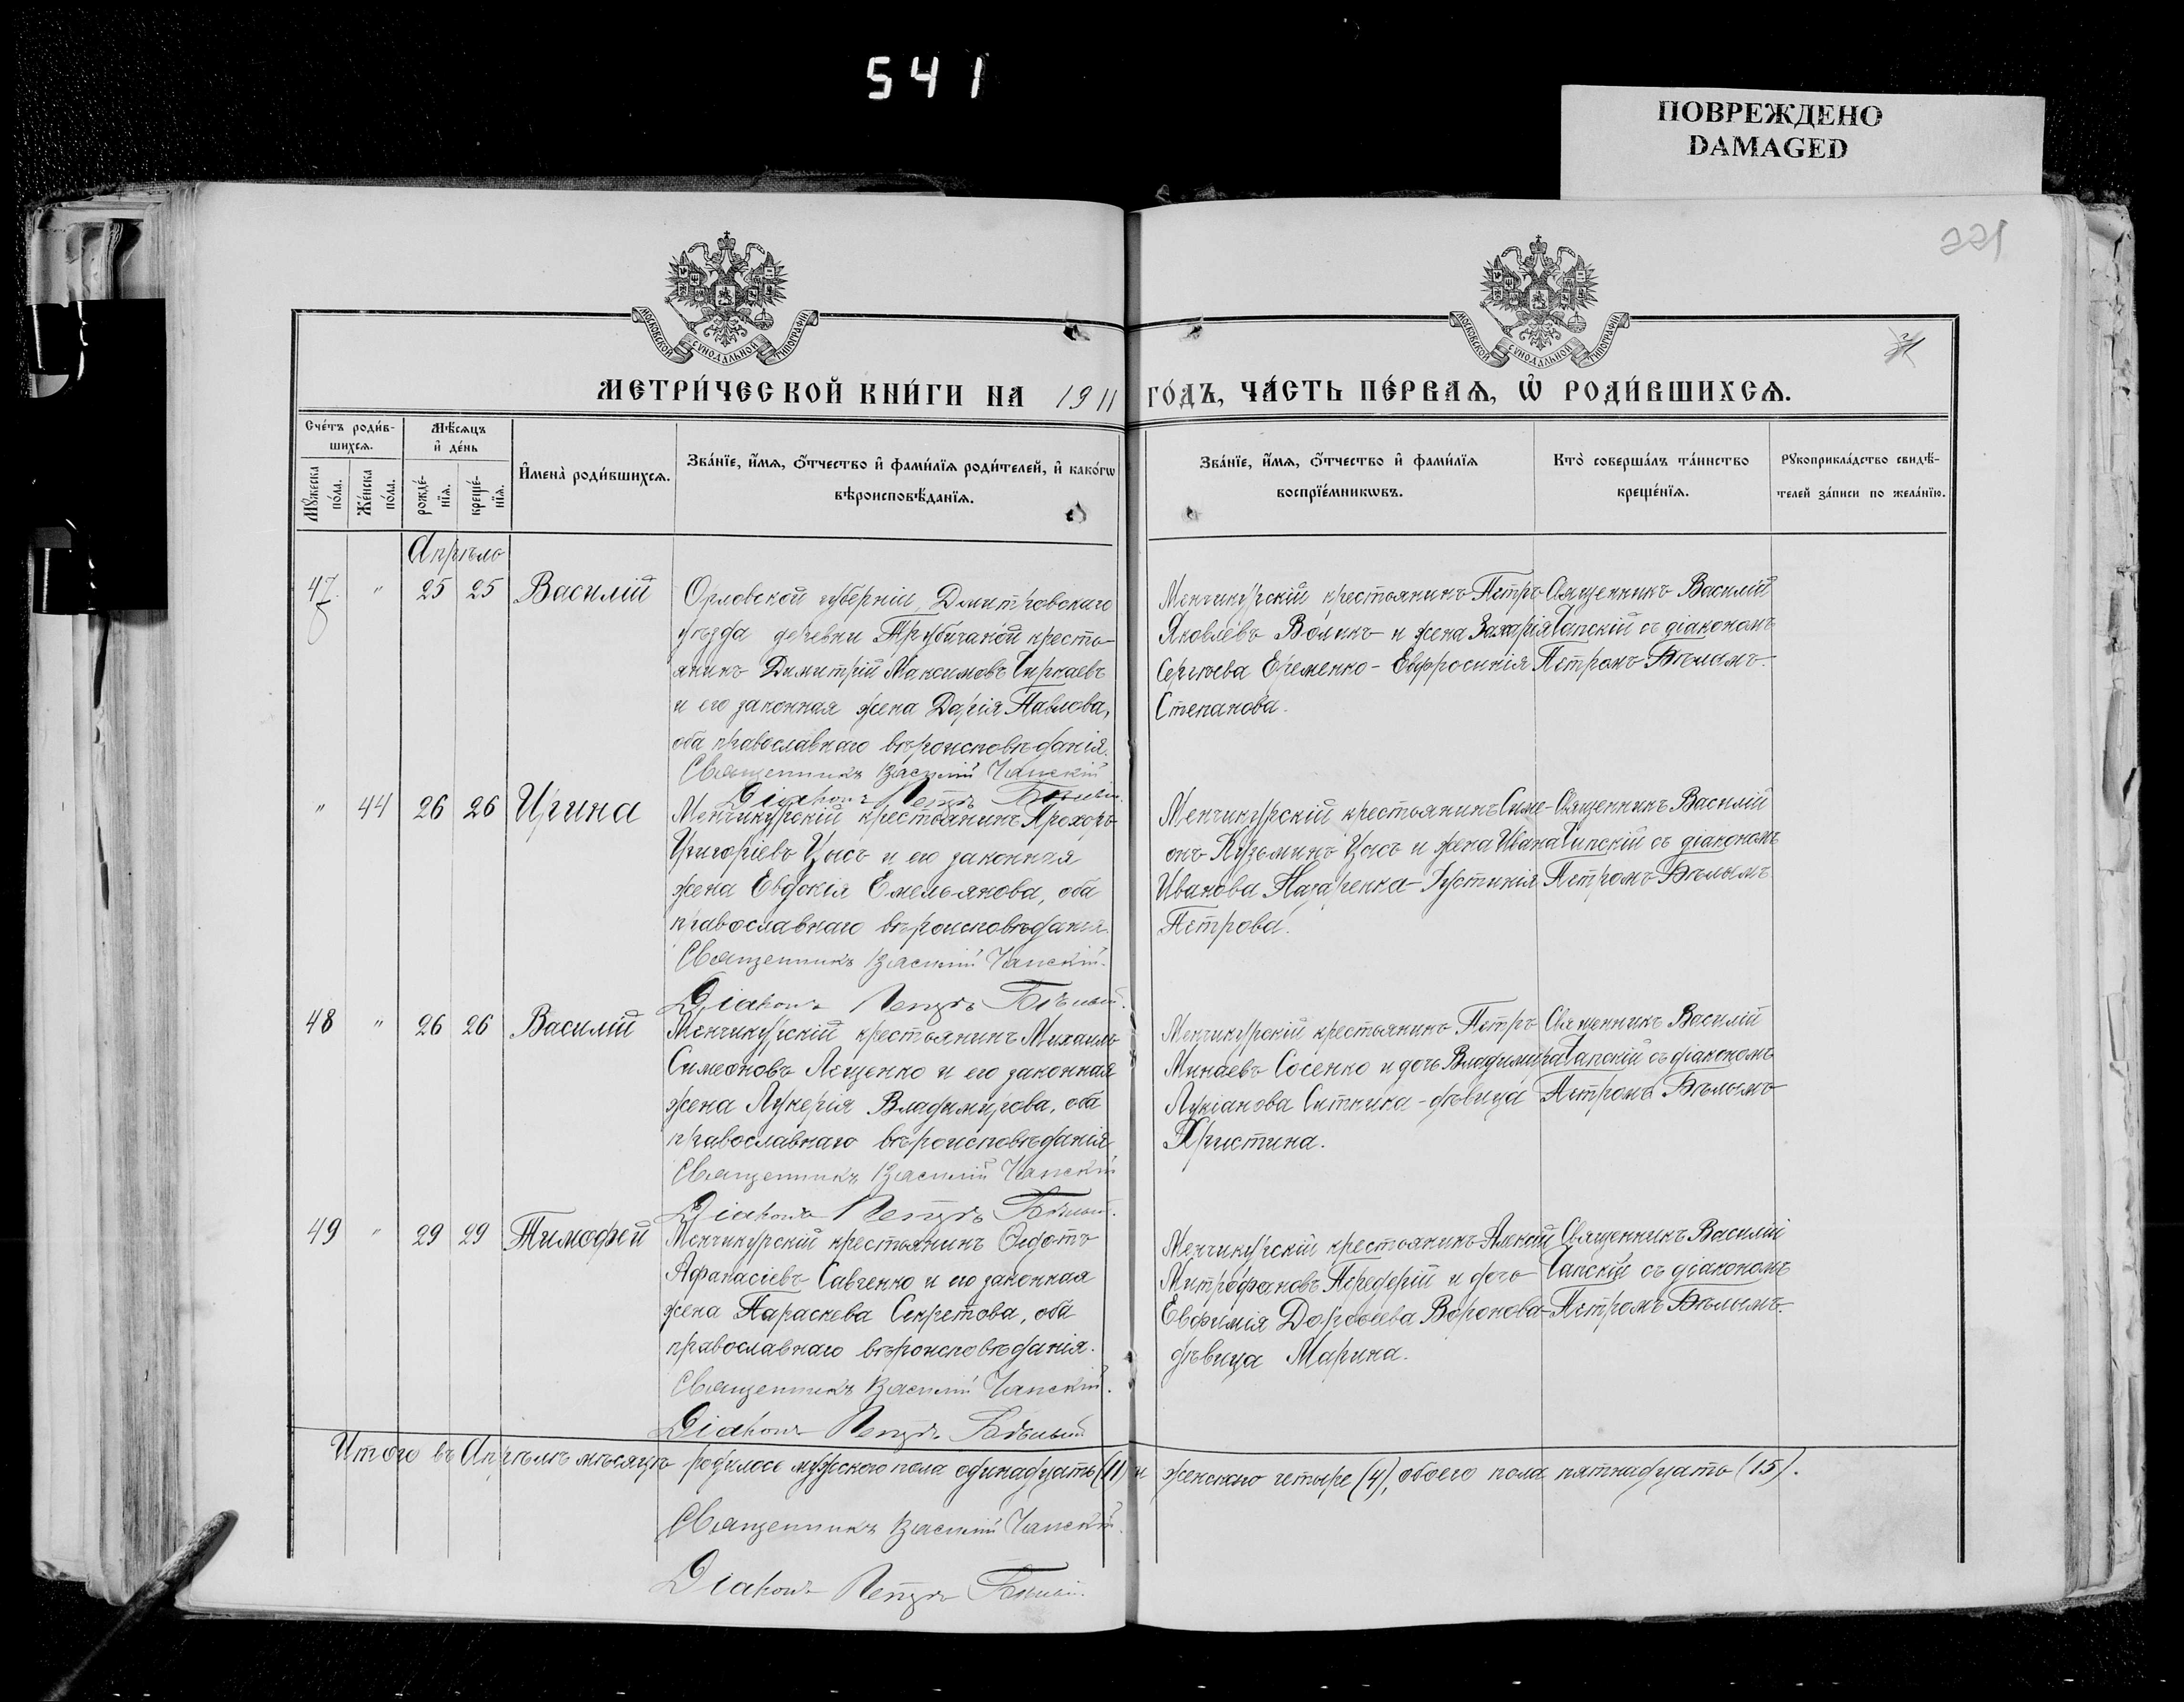 541
ПОВРЕЖДЕНО
DAMAGED
221
МОСКОВСКОЙ СѴНОДАЛЬНОЙ ТИПОГРАФІИ
МОСКОВСКОЙ СѴНОДАЛЬНОЙ ТИПОГРАФІИ
МЕТРИ́ЧЕСКОЙ КНИ́ГИ НА 1911 ГО́ДЪ, ЧА́СТЬ ПЕ́РВАѦ, Ѡ҆ РОДИ́ВШИХСѦ.
Сче́тъ роди́в-
шихсѧ.
Мꙋ́жеска по́ла.
Же́нска по́ла.
Мѣ́сѧцъ
и҆ де́нь
рожде́-
нїѧ.
креще́-
нїѧ.
И҆мена̀ роди́вшихсѧ.
Зва́нїе, и҆́мѧ, ѻ҆́тчество и҆ фами́лїѧ роди́телей, и҆ како́гѡ
вѣроисповѣ́данїѧ.
Зва́нїе, и҆́мѧ, ѻ҆́тчество и҆ фами́лїѧ
воспрїе́мникѡвъ.
Кто̀ соверша́лъ та́инство
креще́нїѧ.
Рꙋкоприкла́дство свидѣ́-
телей за́писи по жела́нїю.
Апрѣль
47. " 25 25 Василій
Орловской губерніи, Дмитровскаго
уѣзда деревни Трубичаной кресть-
янинъ Димитрій Максимовъ Чиркаевъ
и его законная жена Дарія Павлова,
оба православнаго вѣроисповѣданія.
Священникъ Василій Чапскій
Діаконъ Петръ Бѣлый.
Менчикурскій крестьянинъ Петръ
Яковлевъ Воликъ и жена Захарія
Сергѣева Еременко - Евфросинія
Степанова.
Священникъ Василій
Чапскій съ діакономъ
Петромъ Бѣлымъ.
" 44 26 26 Ирина
Менчикурскій крестьянинъ Прохоръ
Григоріевъ Цысь и его законная
жена Евдокія Емельянова, оба
православнаго вѣроисповѣданія.
Священникъ Василій Чапскій.
Діаконъ Петръ Бѣлый.
Менчикурскій крестьянинъ Симе-
онъ Кузьминъ Цысь и жена Ивана
Иванова Назаренка - Іустинія
Петрова.
Священникъ Василій
Чапскій съ діакономъ
Петромъ Бѣлымъ
48 " 26 26 Василій
Менчикурскій крестьянинъ Михаилъ
Симеоновъ Лещенко и его законная
жена Лукерія Владимирова, оба
православнаго вѣроисповѣданія
Священникъ Василій Чапскій
Діаконъ Петръ Бѣлый.
Менчикурскій крестьянинъ Петръ
Минаевъ Сосенко и дочь Владимира
Лукіанова Ситника - дѣвица
Христина.
Священникъ Василій
Чапскій съ діакономъ
Петромъ Бѣлымъ
49 " 29 29 Тимофей
Менчикурскій крестьянинъ Ѳедотъ
Афанасіевъ Савченко и его законная
жена Параскева Секретова, оба
православнаго вѣроисповѣданія.
Священникъ Василій Чапскій.
Діаконъ Петръ Бѣлый
Менчикурскій крестьянинъ Алексій
Митрофановъ Передерій и дочь
Евфимія Доробеева Воронова -
дѣвица Марина.
Священникъ Василій
Чапскій съ діакономъ
Петромъ Бѣлымъ.
Итого въ Апрѣлѣ мѣсяцѣ родилось мужского пола одинадцать (11) и женскаго четыре (4), обоего пола пятнадцать (15).
Священникъ Василій Чапскій.
Діаконъ Петръ Бѣлый.